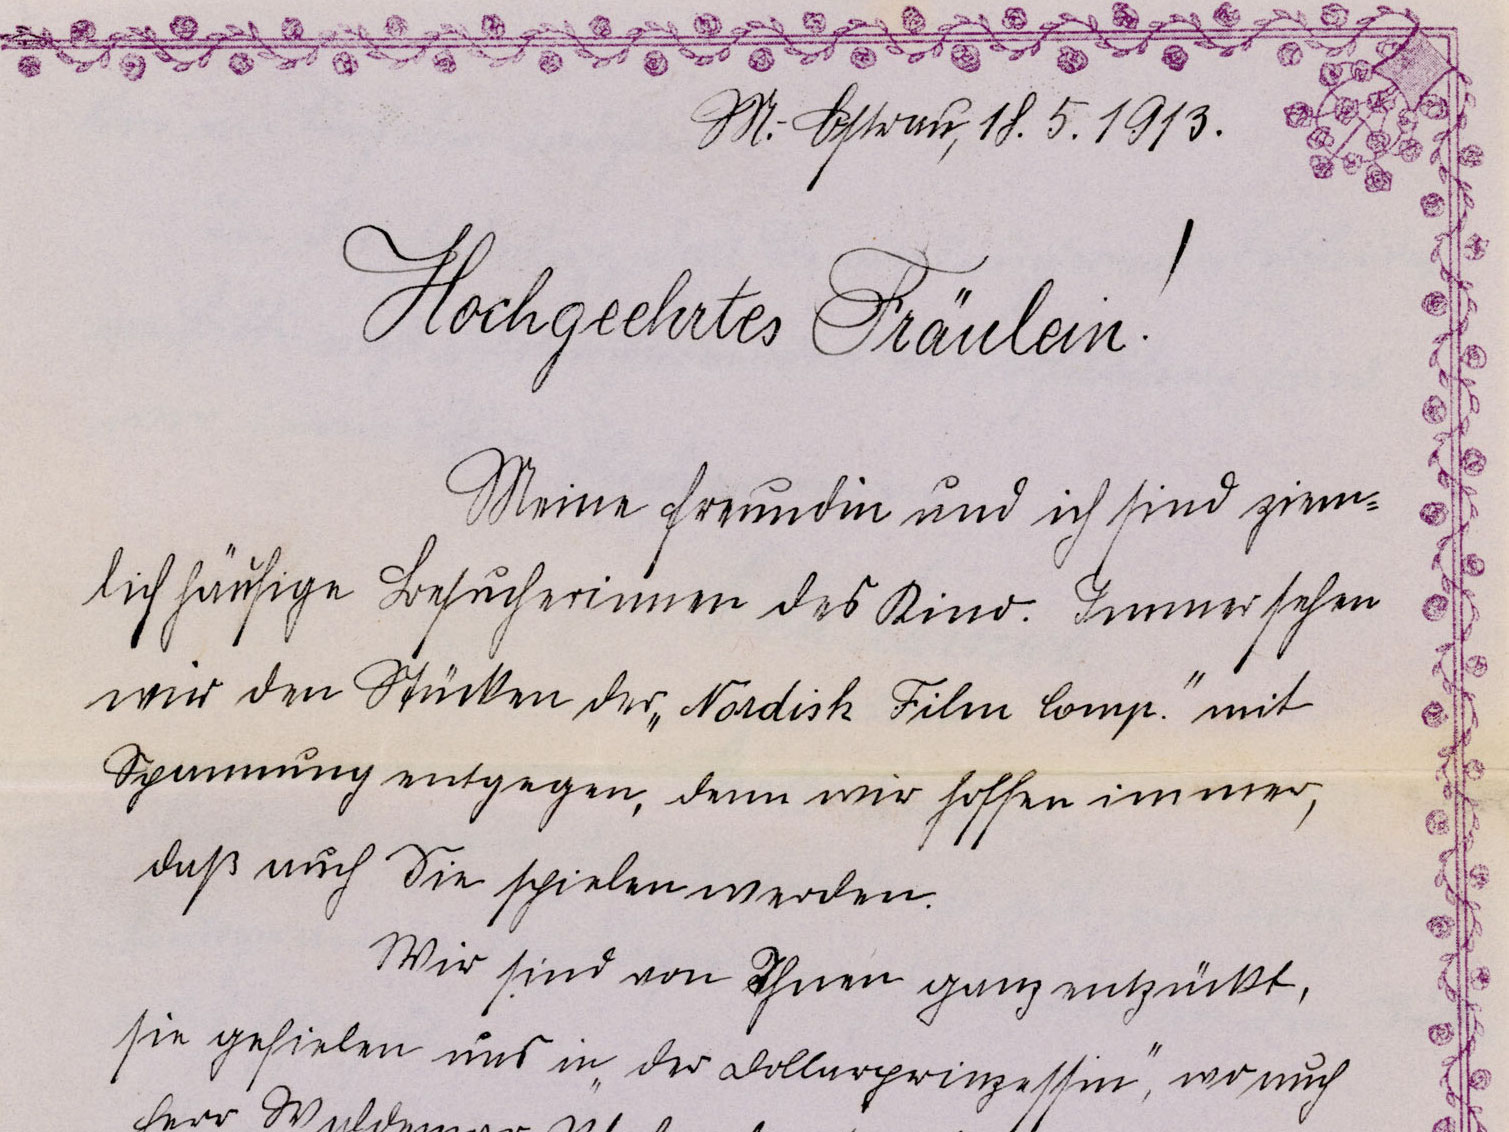 M.-Ostrau, 18. 5. 1913.
Hochgeehrtes Fräulein!
Meine Freundin und ich sind ziem=
lich häufige Besucherinnen des Kino. Immer sehen
wir den Stücken der „Nordisk Film Comp." mit
Spannung entgegen, denn wir hoffen immer,
daß auch Sie spielen werden.
Wir sind von Ihnen ganz entzückt,
sie gefielen uns in „der Dollarprinzessin", wo auch
Herr Waldemar